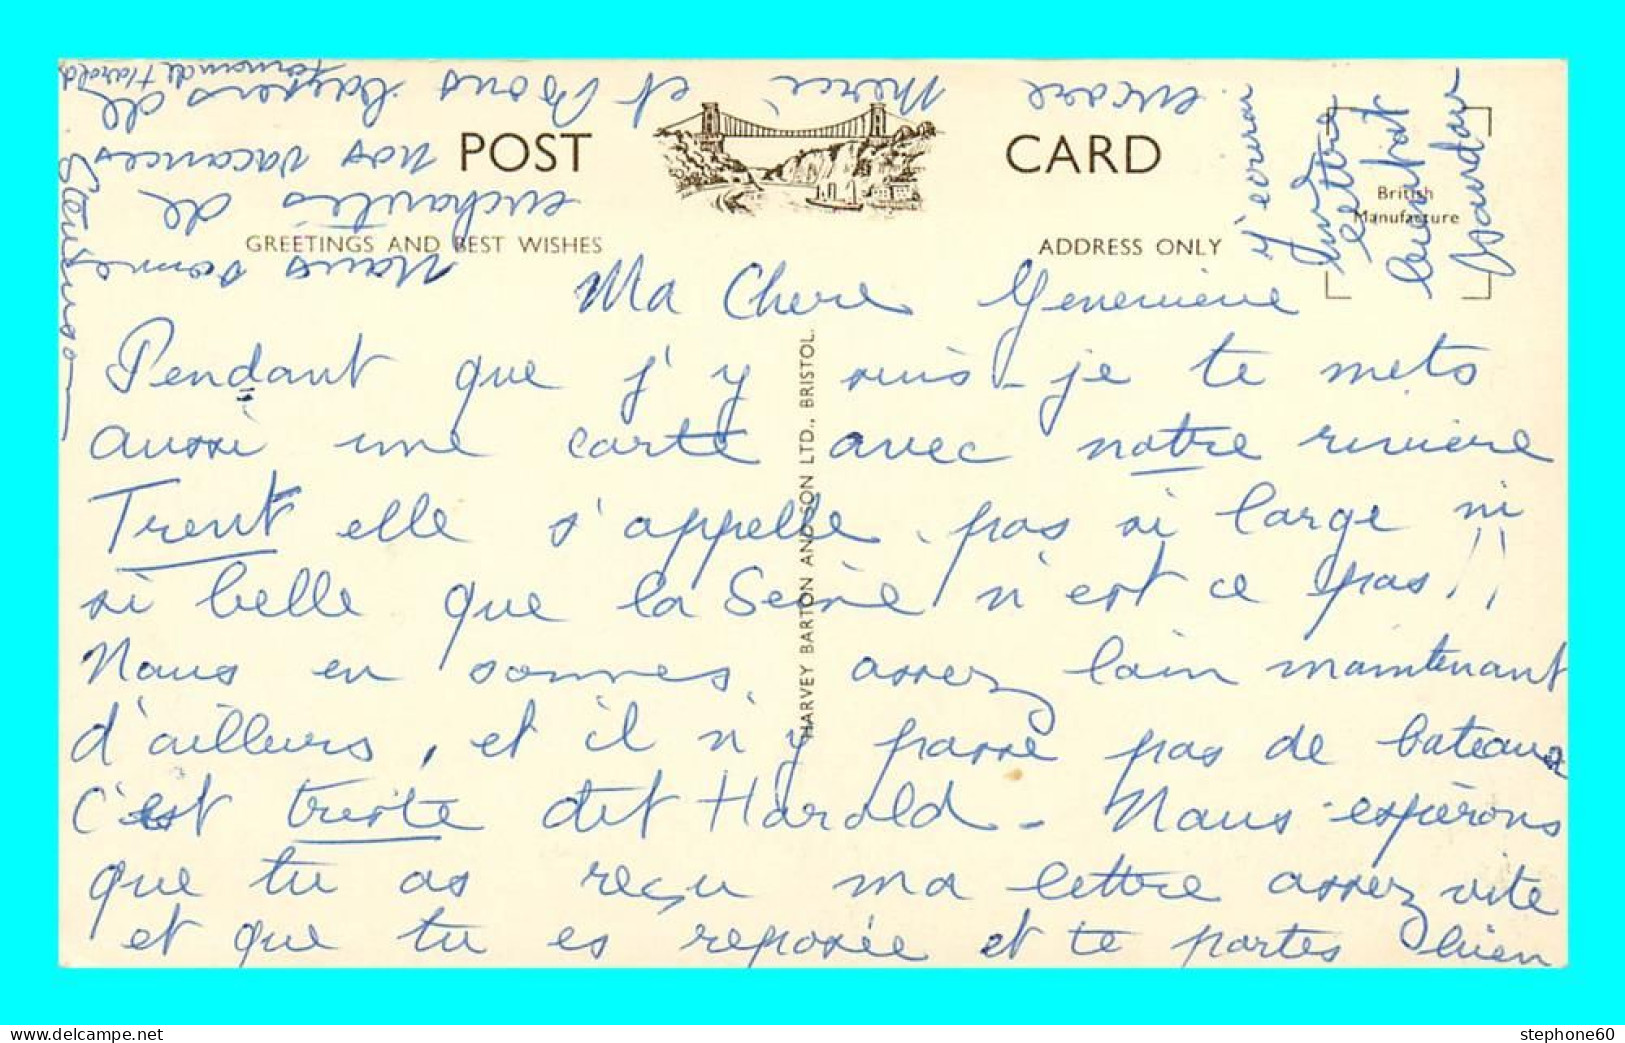 POST CARD
GREETINGS AND BEST WISHES
ADDRESS ONLY
British
Manufacture
HARVEY BARTON AND SON LTD., BRISTOL.
Ma Chere Genevieve
Pendant que j'y suis - je te mets
aussi une carte avec notre riviere
Trent elle s'appelle, pas si large ni
si belle que la Seine n'est ce pas!!
Nous en sommes, assez loin maintenant
d'ailleurs, et il n'y passe pas de bateaux
c'est triste dit Harold - Nous espérons
que tu as reçu ma lettre assez vite
et que tu es reposée et te portes bien
j'écrirai
une
lettre
bientot
Nous sommes
enchantés de
nos vacances
encore merci et bons baisers de
Harold
Stevenson
stephone60